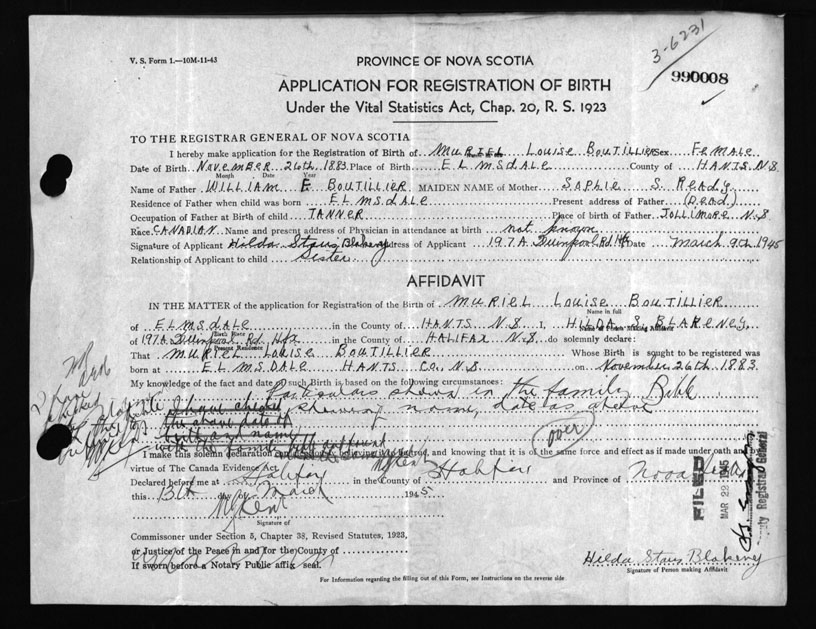 3-6231
V. S. Form 1.—10M-11-43
PROVINCE OF NOVA SCOTIA
990008
APPLICATION FOR REGISTRATION OF BIRTH
Under the Vital Statistics Act, Chap. 20, R. S. 1923
TO THE REGISTRAR GENERAL OF NOVA SCOTIA
I hereby make application for the Registration of Birth of MURIEL Louise BOUTILLIER Sex FEMALE
Date of Birth NOVEMBER 26th, 1883 Place of Birth ELMSDALE County of HANTS, N.S.
Month Date Year
Name of Father WILLIAM E BOUTILLIER MAIDEN NAME of Mother Sophie S. Ready
Residence of Father when child was born ELMSDALE Present address of Father (Dead)
Occupation of Father at Birth of child TANNER Place of birth of Father JOLLIMORE N.S.
Race CANADIAN Name and present address of Physician in attendance at birth not known
Signature of Applicant Hilda Stairs Blakeney Address of Applicant 197A Quinpool Rd Hfx Date March 9th 1945
Relationship of Applicant to child Sister
AFFIDAVIT
IN THE MATTER of the application for Registration of the Birth of MURIEL Louise BOUTILLIER
Name in full
of ELMSDALE in the County of HANTS N.S. I, HILDA S. BLAKENEY
Birth Place Name of Person Making Affidavit
of 197A Quinpool Rd Hfx in the County of HALIFAX N.S. do solemnly declare:
Present Residence
That MURIEL Louise BOUTILLIER Whose Birth is sought to be registered was
born at ELMSDALE HANTS Co. N.S. on November 26th 1883.
My knowledge of the fact and date of such Birth is based on the following circumstances:
Particulars shown in the family Bible
showing name, date as above
the above date of
birth and name
(over)
I make this solemn declaration conscientiously believing it to be true, and knowing that it is of the same force and effect as if made under oath and
virtue of The Canada Evidence Act.
Declared before me at Halifax in the County of Halifax and Province of Nova Scotia
this 13th day of March 1945
Signature of
Commissioner under Section 5, Chapter 38, Revised Statutes, 1923,
or Justice of the Peace in and for the County of
If sworn before a Notary Public affix seal.
FILED
MAR 22 1945
Deputy Registrar General
Hilda Stairs Blakeney
Signature of Person making Affidavit
For Information regarding the filling out of this Form, see Instructions on the reverse side